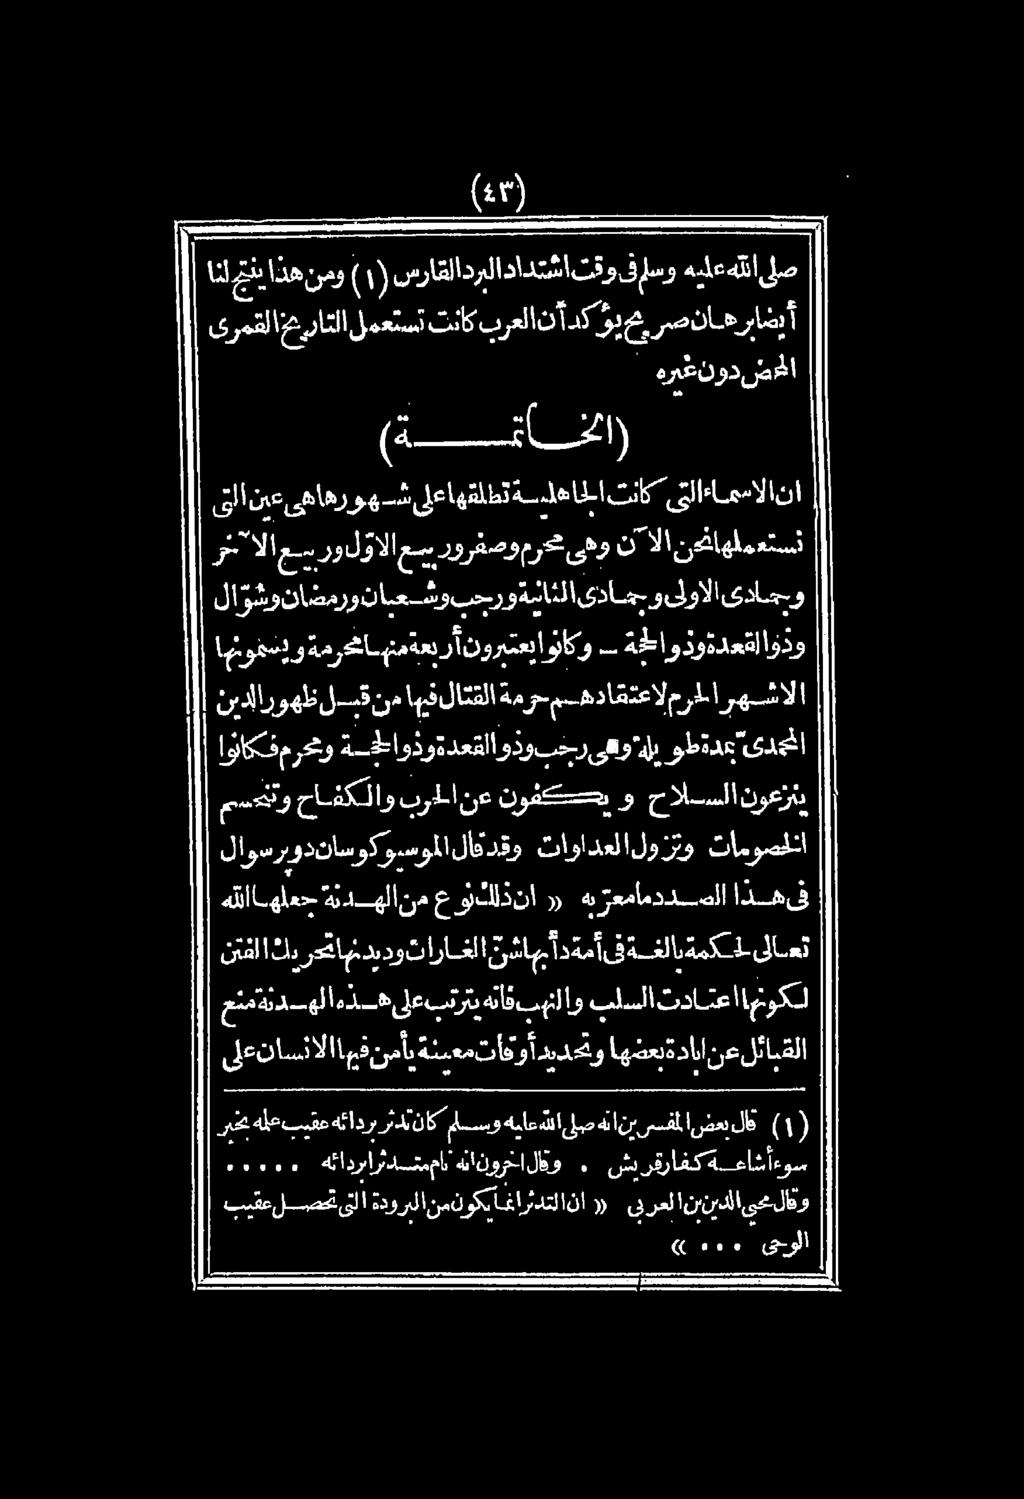 (٤٣)
صلى الله عليه وسلم فى وقت اشتداد البرد القارس (١) ومن هذا ينتج لنا
أيضا برهان صريح يؤكد أن العرب كانت تستعمل التاريخ القمرى
المحض دون غيره
(الخاتمة)
ان الاسماء التى كانت الجاهلية تطلقها على شهورها هى عين التى
نستعملها نحن الآن وهى محرم وصفر وربيع الاول وربيع الآخر
وجمادى الاولى وجمادى الثانية ورجب وشعبان ورمضان وشوّال
وذو القعدة وذو الحجة – وكانوا يعتبرون أربعة منها محرمة ويسمونها
الاشهر الحرم لاعتقادهم حرمة القتال فيها من قبل ظهور الدين
المحمدى بمدة طويلة وهى رجب وذو القعدة وذو الحجة ومحرم فكانوا
ينزعون السلاح ويكفون عن الحرب والكفاح وتنحسم
الخصومات وتزول العداوات وقد قال الموسيو كوسان دو برسوال
فى هذا الصدد مامعرّبه » ان ذلك نوع من الهدنة جعلها الله
تعالى لحكمة بالغة فى أمة دأبها شنّ الغارات وديدنها تحريك الفتن
لكونها اعتادت السلب والنهب فانه يترتب على هذه الهدنة منع
القبائل عن ابادة بعضها وتحديد أوقات معينة يأمن فيها الانسان على
(١) قال بعض المفسرين انه صلى الله عليه وسلم كان تدثر بردائه عقيب علمه بخبر
سوء أشاعه كفار قريش . وقال اخرون انه نام متدثرا بردائه .....
وقال محيى الدين بن العربى » ان التدثر انما يكون من البرودة التى تحصل عقيب
الوحى ... «